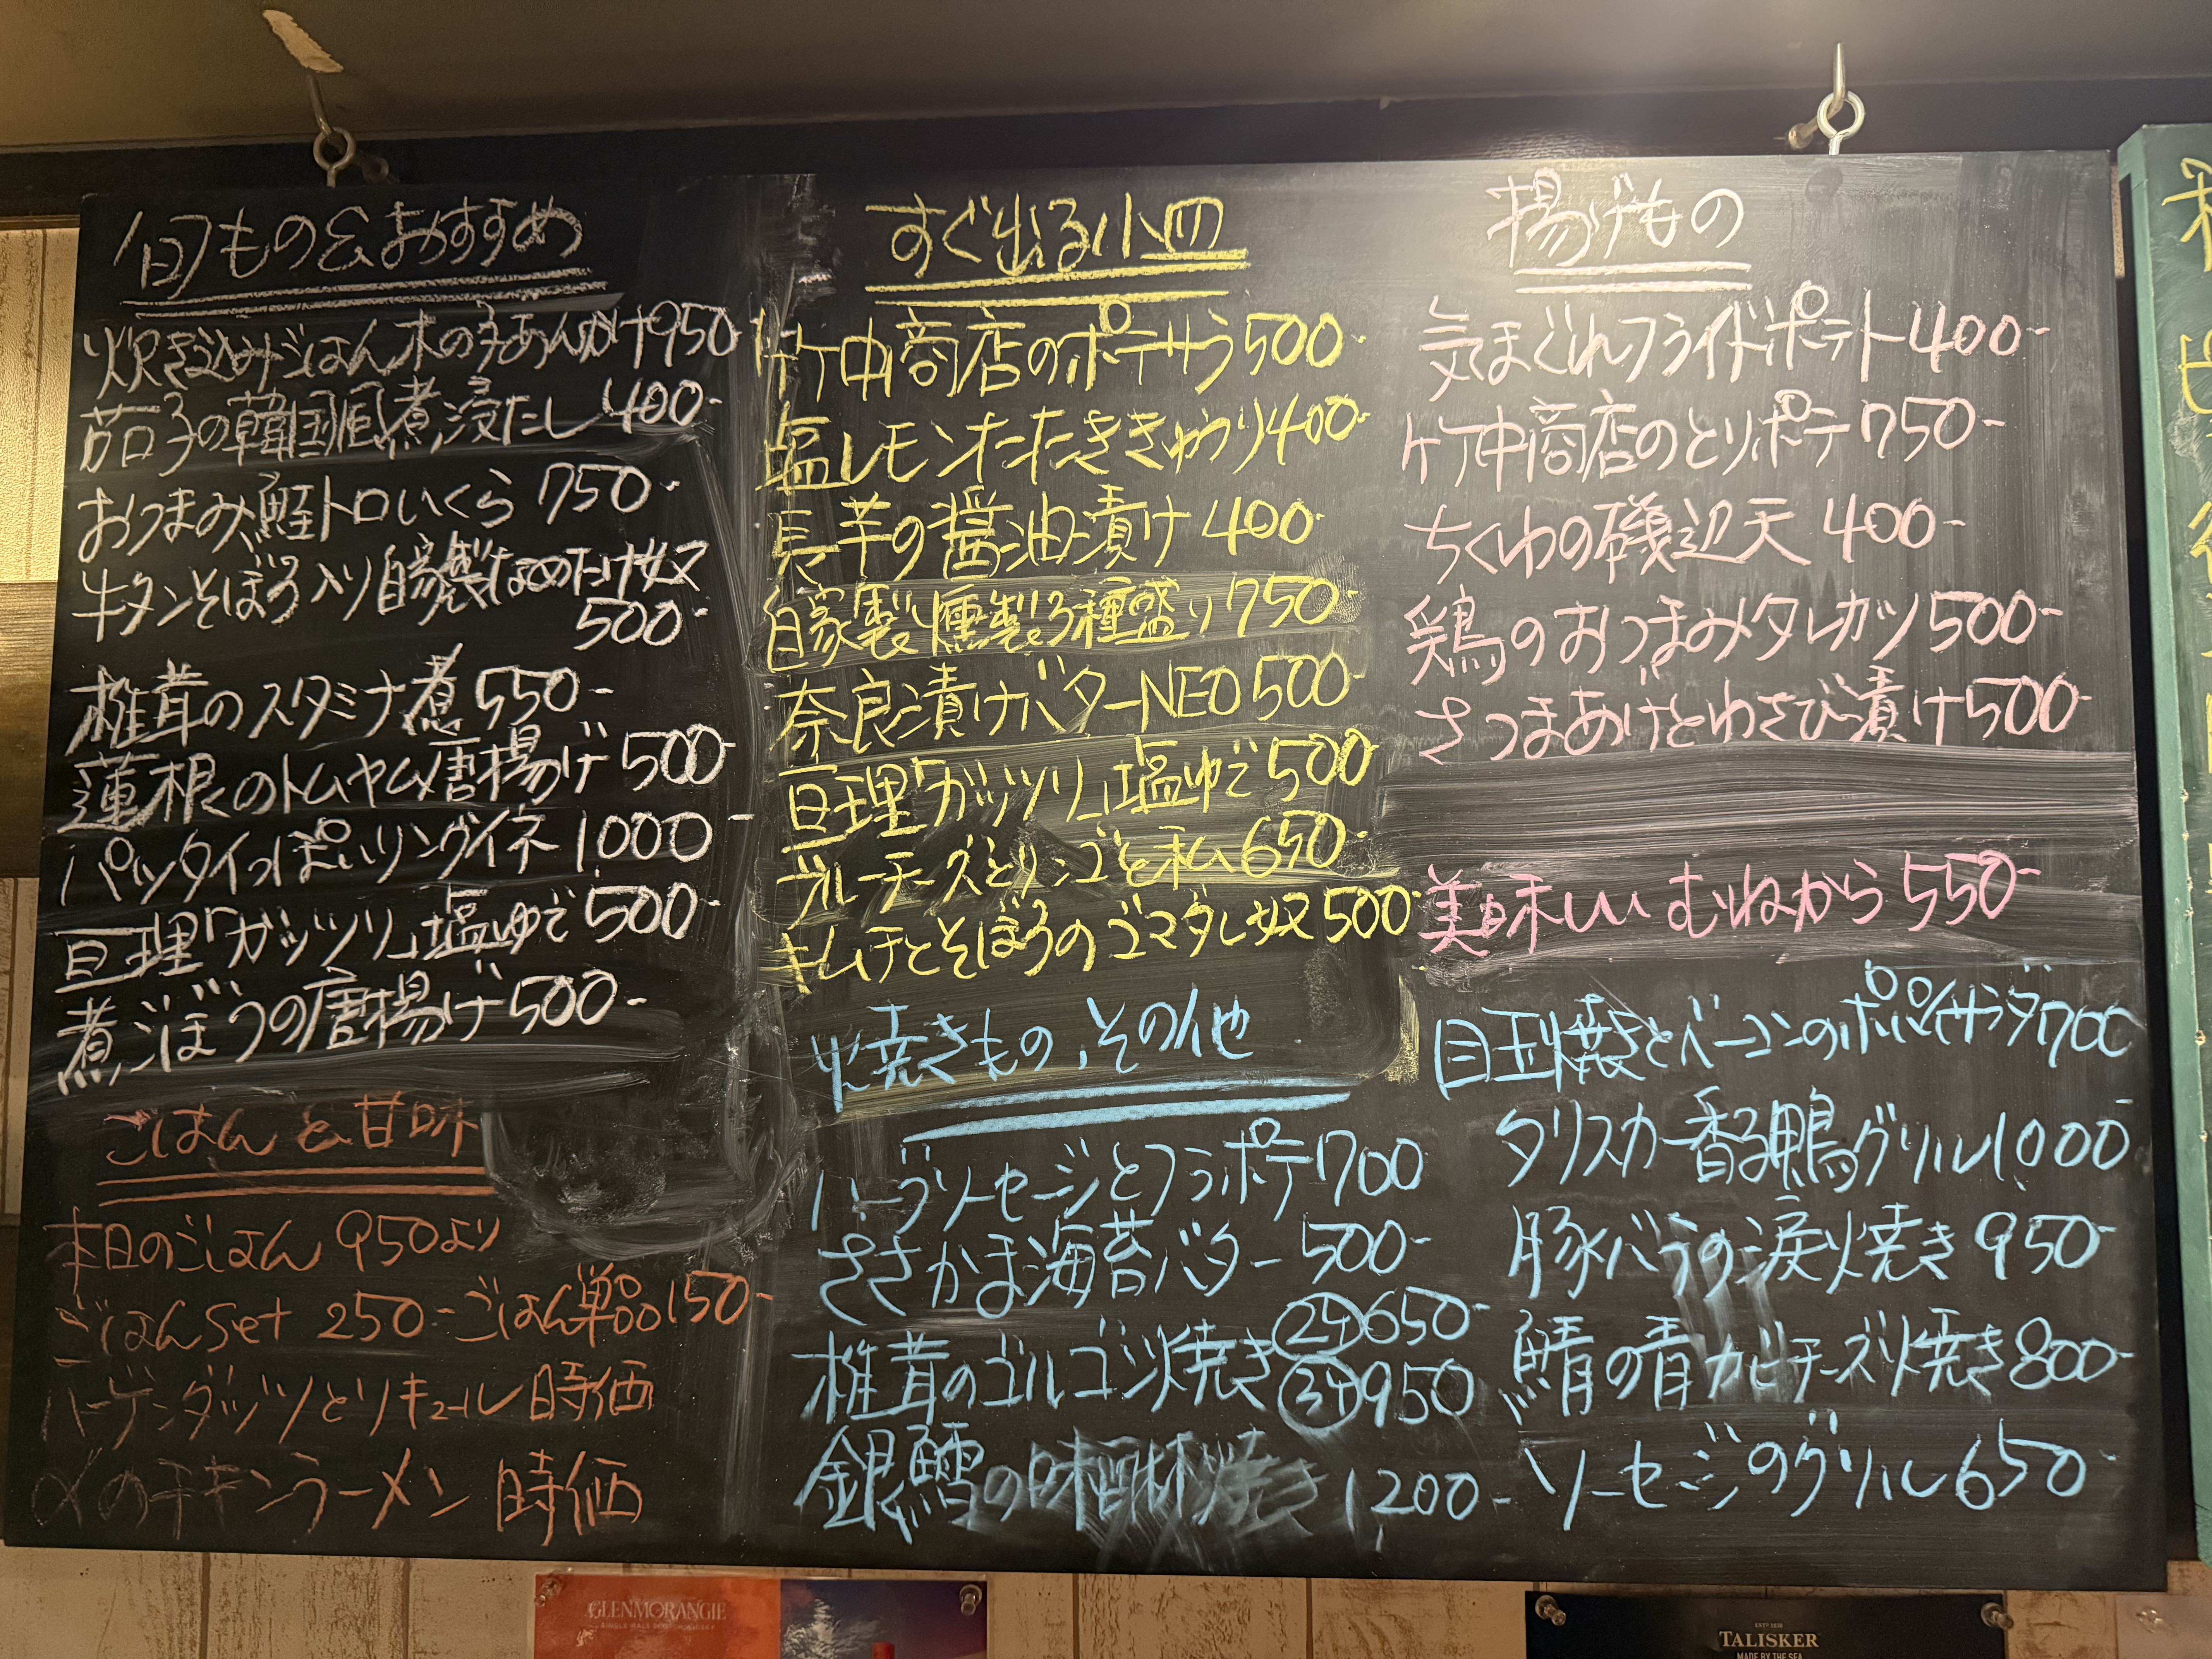 旬もの&おすすめ
炊き込みごはん木の子あんかけ950
茄子の韓国風煮浸だし400-
おつまみ鮭トロいくら750-
牛タンそぼろ入り自家製なめたけ奴
500-
椎茸のスタミナ煮550-
蓮根のトムヤム唐揚げ500-
パッタイっぽいリングイネ1,000-
亘理「ガッツリ」塩ゆで500-
煮ごぼうの唐揚げ500-
ごはんと甘味
本日のごはん 950より
ごはんSet 250-ごはん単品150-
ハーゲンダッツとリキュール 時価
〆のチキンラーメン 時価
すぐ出る小皿
竹中商店のポテサラ500-
塩レモンたたききゅうり400-
長芋の醤油漬け 400-
自家製燻製3種盛り750-
奈良漬けバターNEO500-
亘理「ガッツリ」塩ゆで500-
ブルーチーズとリンゴと私650-
キムチとそぼろのゴマダレ奴500-
焼きもの、その他
ハーブソーセージとフラポテ700
ささかま海苔バター500-
椎茸のゴルゴンゾ焼き
2ヶ650-
3ヶ950
銀鱈の味醂焼き 1,200-
揚げもの
気まぐれフライドポテト400-
竹中商店のとりポテ750-
ちくわの磯辺天 400-
鶏のおつまみタレカツ500-
さつまあげとわさび漬け500-
美味しい むねから550-
目玉焼きとベーコンのポパイサラダ700
タリスカー香る鴨グリル1,000-
豚バラの涙焼き 950-
鯖の青カビチーズ焼き800-
ソーセージのグリル650-
GLENMORANGIE
TALISKER
MADE BY THE SEA